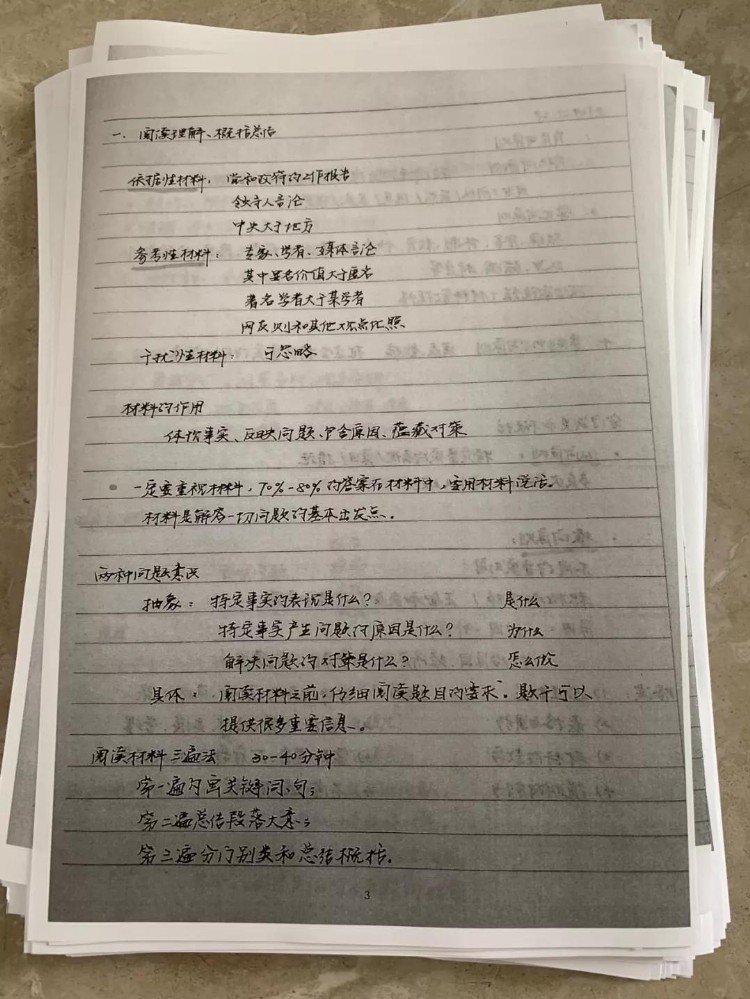 一、阅读理解、概括总结
依据性材料：党和政府的工作报告
领导人言论
中央大于地方
参考性材料：专家、学者、媒体言论
其中显名价值大于匿名
著名学者大于某学者
网友则和其他观点比照
干扰性材料：可忽略
材料的作用
体现事实、反映问题、包含原因、蕴藏对策
一定要重视材料，70%-80%的答案在材料中，要用材料说话。
材料是解答一切问题的基本出发点。
两种问题意识
抽象：特定事实的表现是什么？ 是什么
特定事实产生问题的原因是什么？ 为什么
解决问题的对策是什么？ 怎么做
具体：阅读材料之前，仔细阅读题目的要求。题干可以
提供很多重要信息。
阅读材料三遍法 30-40分钟
第一遍勾画关键词、句；
第二遍总结段落大意；
第三遍分门别类和总结概括.
3